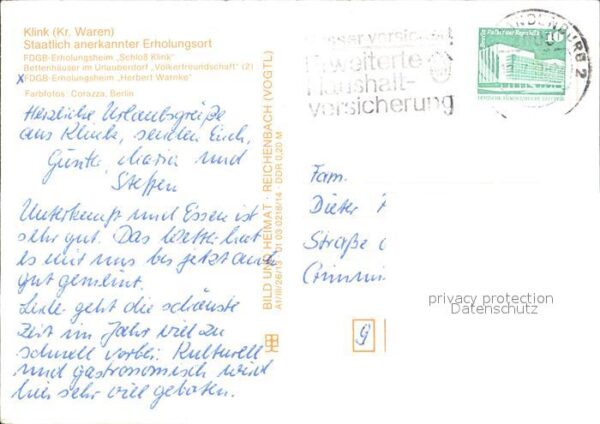 Klink (Kr. Waren)
Staatlich anerkannter Erholungsort
FDGB-Erholungsheim „Schloß Klink"
Bettenhäuser im Urlauberdorf „Völkerfreundschaft" (2)
x FDGB-Erholungsheim „Herbert Warnke"
Farbfotos: Corazza, Berlin
Herzliche Urlaubsgrüße
aus Klink, senden Euch,
Günter, Maria und
Steffen
Unterkunft und Essen ist
sehr gut. Das Wetter hat
es mit uns bis jetzt auch
gut gemeint.
Leider geht die schönste
Zeit im Jahr viel zu
schnell vorbei. Kulturell
und gastronomisch wird
hier sehr viel geboten.
BILD UND HEIMAT · REICHENBACH (VOGTL)
A1/III/26/13 01 03 0218/14 · DDR 0,20 M
besser versichert
Erweiterte
Haushalt-
versicherung
BRANDENBURG 2
Palast der Republik
10
Fam.
Dieter
Straße
Crimmi
privacy protection
Datenschutz
g